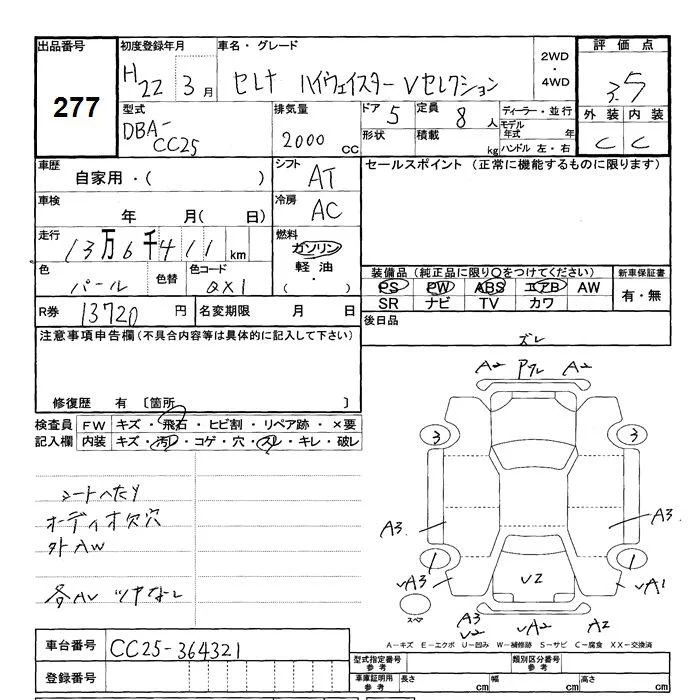 出品番号 初度登録年月 車名・グレード 2WD・4WD 評価点
277 H22 3月 セレナ ハイウェイスター Vセレクション 3.5
型式 排気量 ドア 5 定員 8人 ディーラー・並行 外装 内装
DBA-CC25 2000cc 形状 積載 kg モデル年式 年 C C
ハンドル 左・右
車歴 シフト セールスポイント (正常に機能するものに限ります)
自家用・( ) AT
車検 冷房
年 月( 日) AC
走行 燃料
13万6千411km ガソリン
軽油
・( )
色 色替 色コード 装備品 (純正品に限り○をつけてください) 新車保証書
パール QX1 PS PW ABS エアB AW 有・無
SR ナビ TV カワ
R券 13720円 名変期限 月 日 後日品
注意事項申告欄(不具合内容等は具体的に記入して下さい)
修復歴 有 〔箇所 〕
検査員 FW キズ・飛石・ヒビ割・リペア跡・×要
記入欄 内装 キズ・汚レ・コゲ・穴・スレ・キレ・破レ
シートへたり
オーディオ欠穴
外AW
各AU ツヤなし
ズレ
A2 A2
3 3
A3 A3
1 1
UA3 U2 UA1
スペア
A3 U2 UA2 A2
A-キズ E-エクボ U-凹み W-補修跡 S-サビ C-腐食 XX-交換済
車台番号 CC25-364321 型式指定番号 参考 類別区分番号 参考
登録番号 車庫証明用 参考 長さ cm 幅 cm 高さ cm